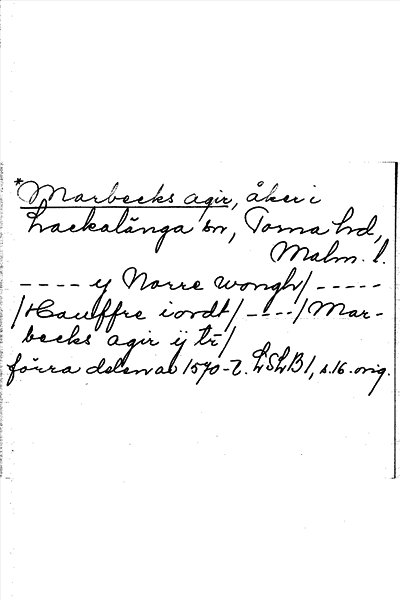 *Marbecks agir, åker i
Lackalänga sn, Torna hd,
Malm. l.
---- y Norre wongh/ -----
/Hauffre iordt/ ----/Mar-
becks agir ÿ tr/
förra delen av 1570-t. LSLB 1, s. 16. orig.